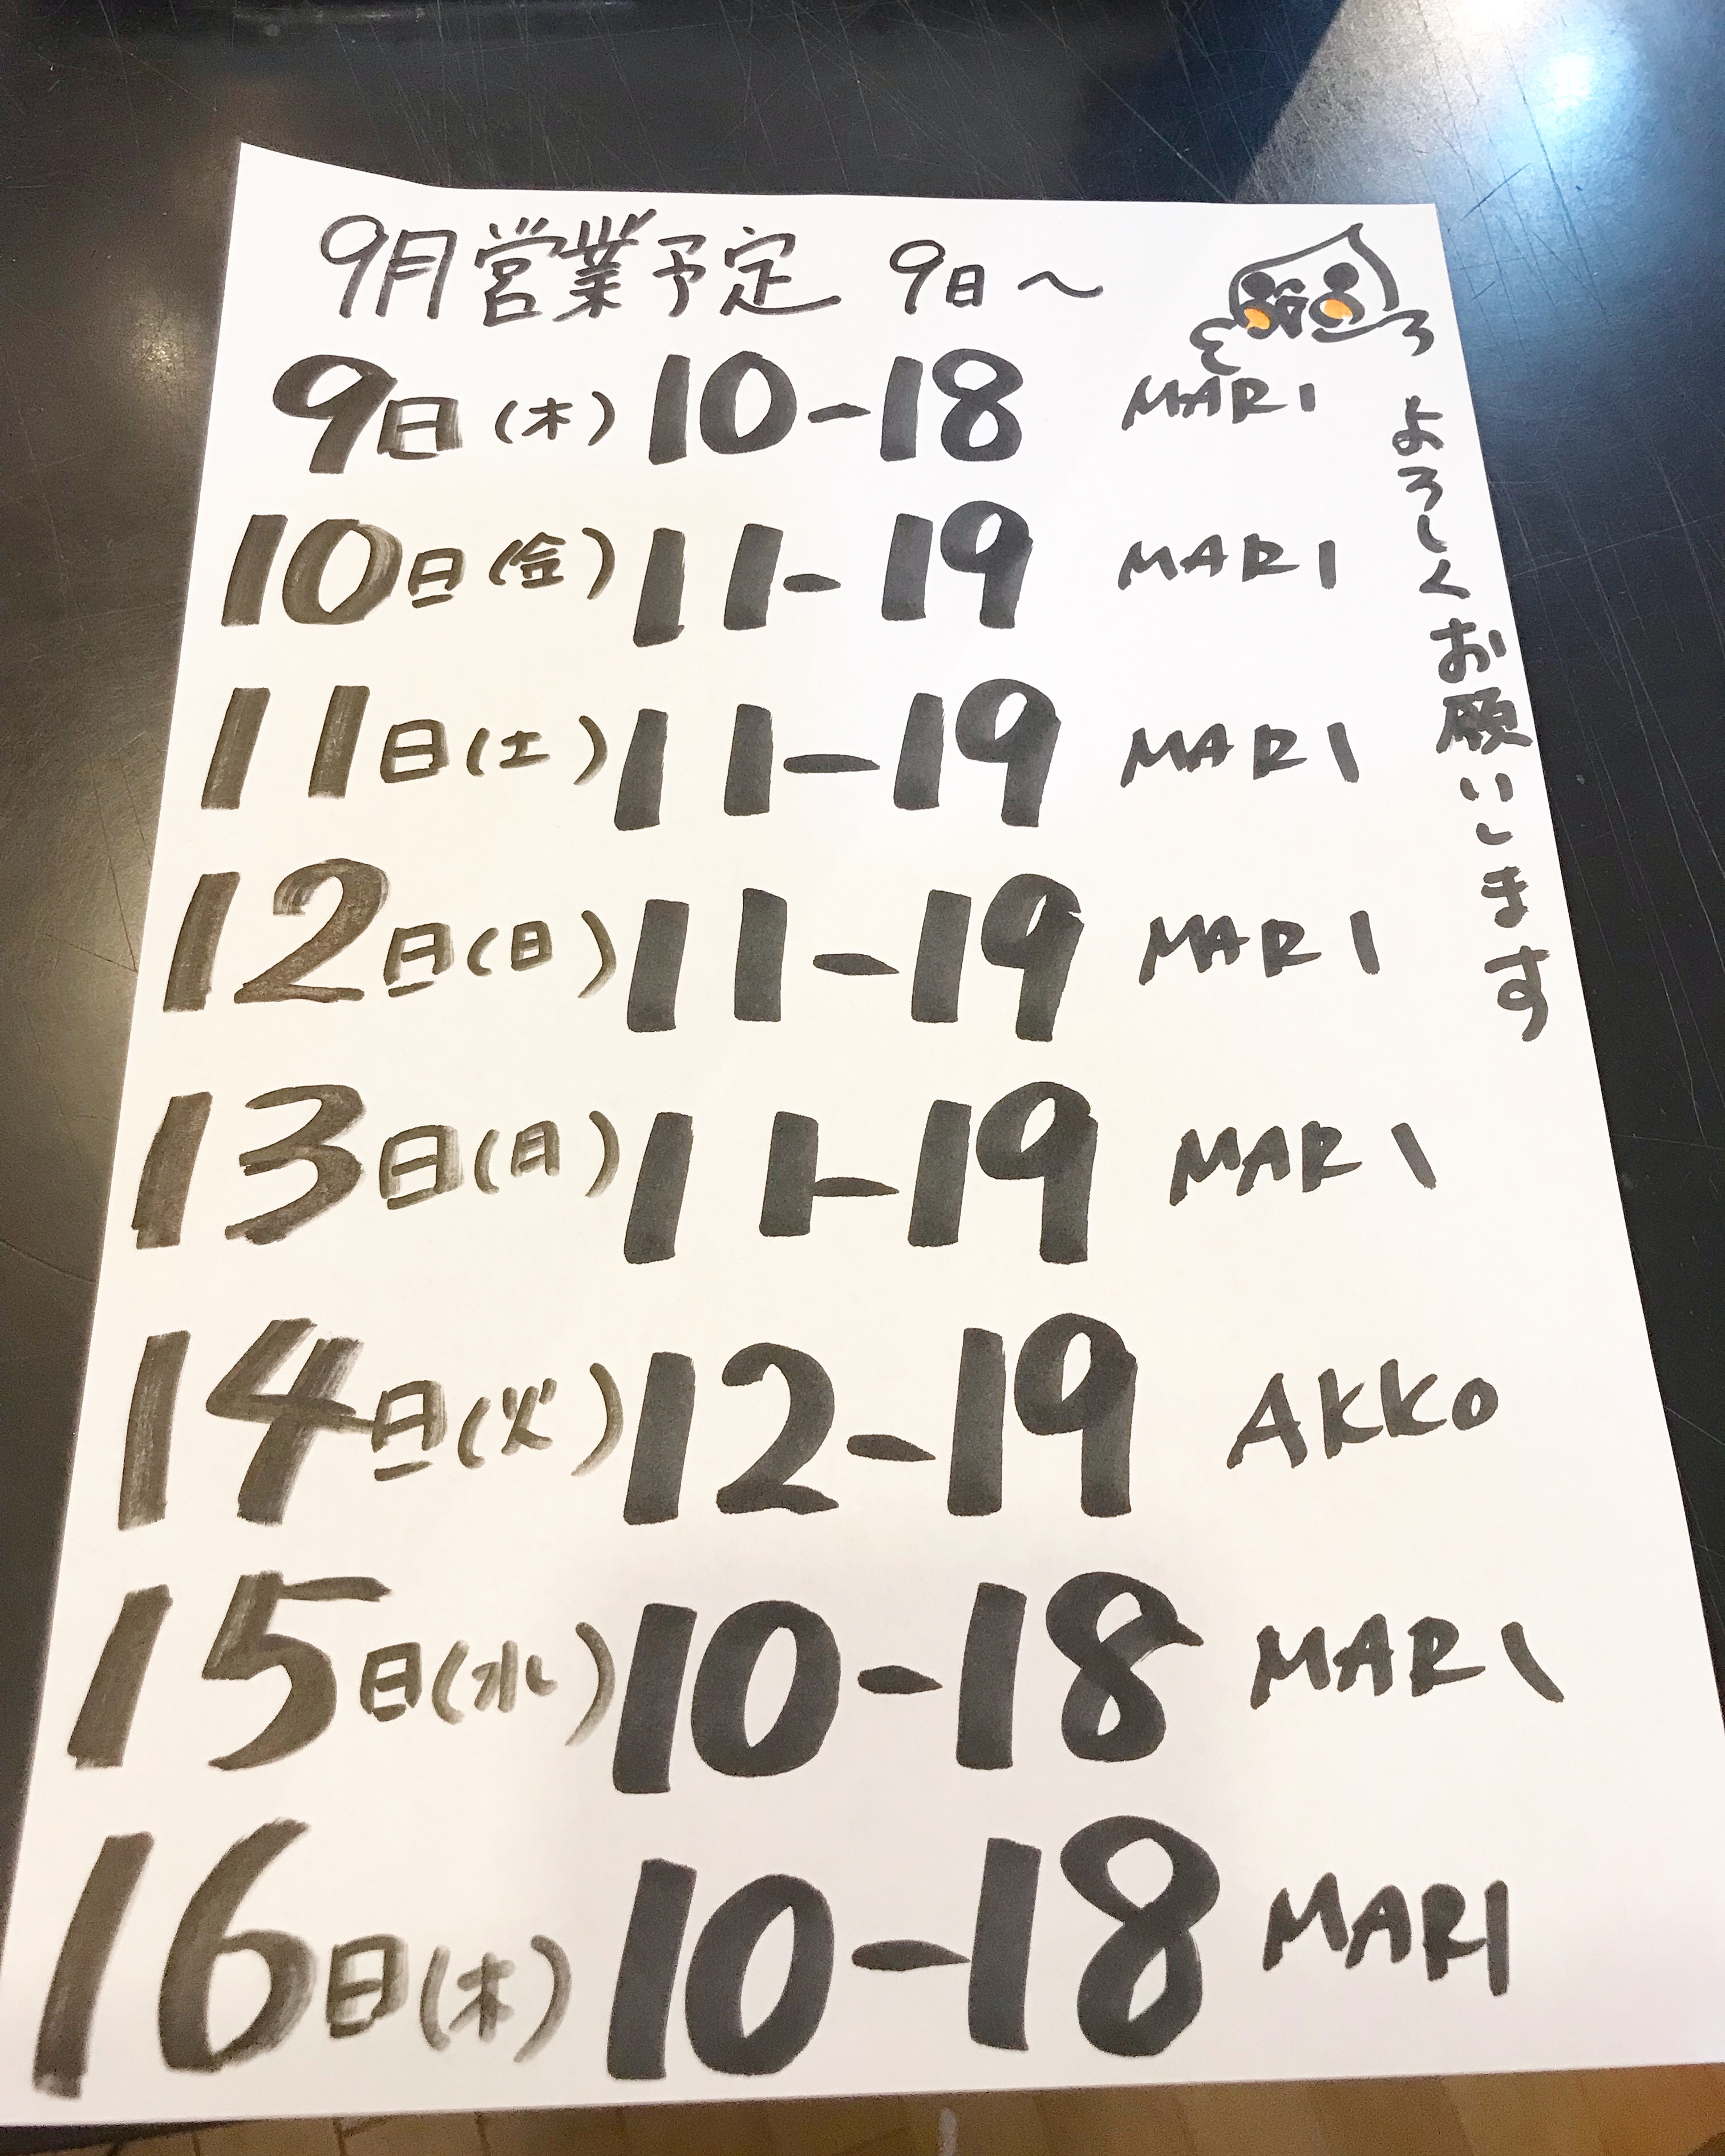 9月営業予定 9日～
9日(木) 10-18 MARI
10日(金) 11-19 MARI
11日(土) 11-19 MARI
12日(日) 11-19 MARI
13日(月) 11-19 MARI
14日(火) 12-19 AKKO
15日(水) 10-18 MARI
16日(木) 10-18 MARI
よろしくお願いします